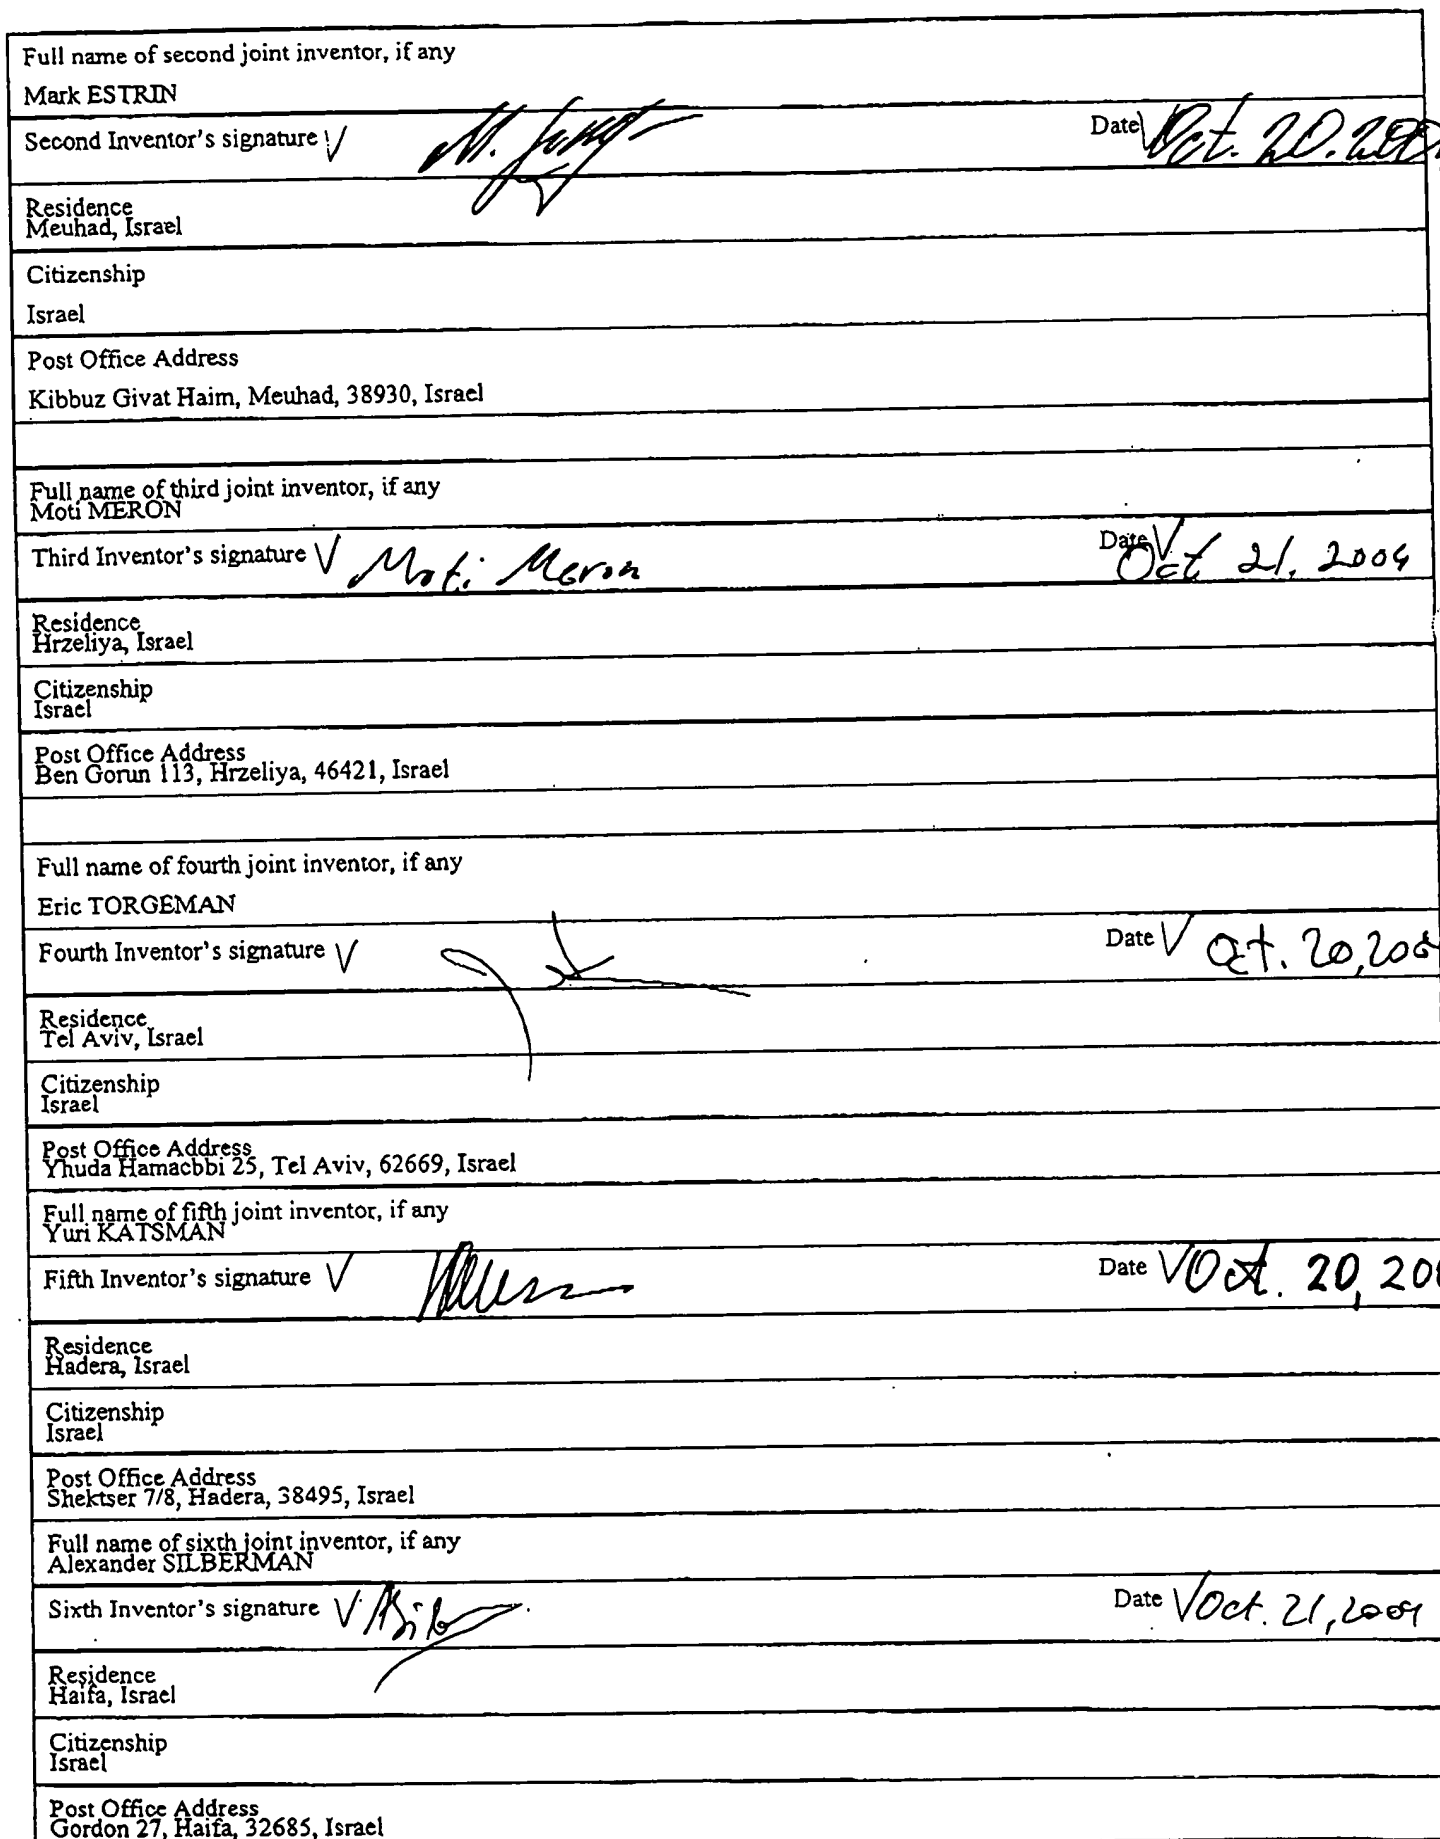 Full name of second joint inventor, if any
Mark ESTRIN
Second Inventor's signature √ M. Date Oct. 20. 200
Residence
Meuhad, Israel
Citizenship
Israel
Post Office Address
Kibbuz Givat Haim, Meuhad, 38930, Israel
Full name of third joint inventor, if any
Moti MERON
Third Inventor's signature √ Moti Meron Date √ Oct 21, 2004
Residence
Hrzeliya, Israel
Citizenship
Israel
Post Office Address
Ben Gorun 113, Hrzeliya, 46421, Israel
Full name of fourth joint inventor, if any
Eric TORGEMAN
Fourth Inventor's signature √ Date √ Oct. 20, 200
Residence
Tel Aviv, Israel
Citizenship
Israel
Post Office Address
Yhuda Hamacbbi 25, Tel Aviv, 62669, Israel
Full name of fifth joint inventor, if any
Yuri KATSMAN
Fifth Inventor's signature √ Date √ Oct. 20, 200
Residence
Hadera, Israel
Citizenship
Israel
Post Office Address
Shektser 7/8, Hadera, 38495, Israel
Full name of sixth joint inventor, if any
Alexander SILBERMAN
Sixth Inventor's signature √ Date √ Oct. 21, 2004
Residence
Haifa, Israel
Citizenship
Israel
Post Office Address
Gordon 27, Haifa, 32685, Israel